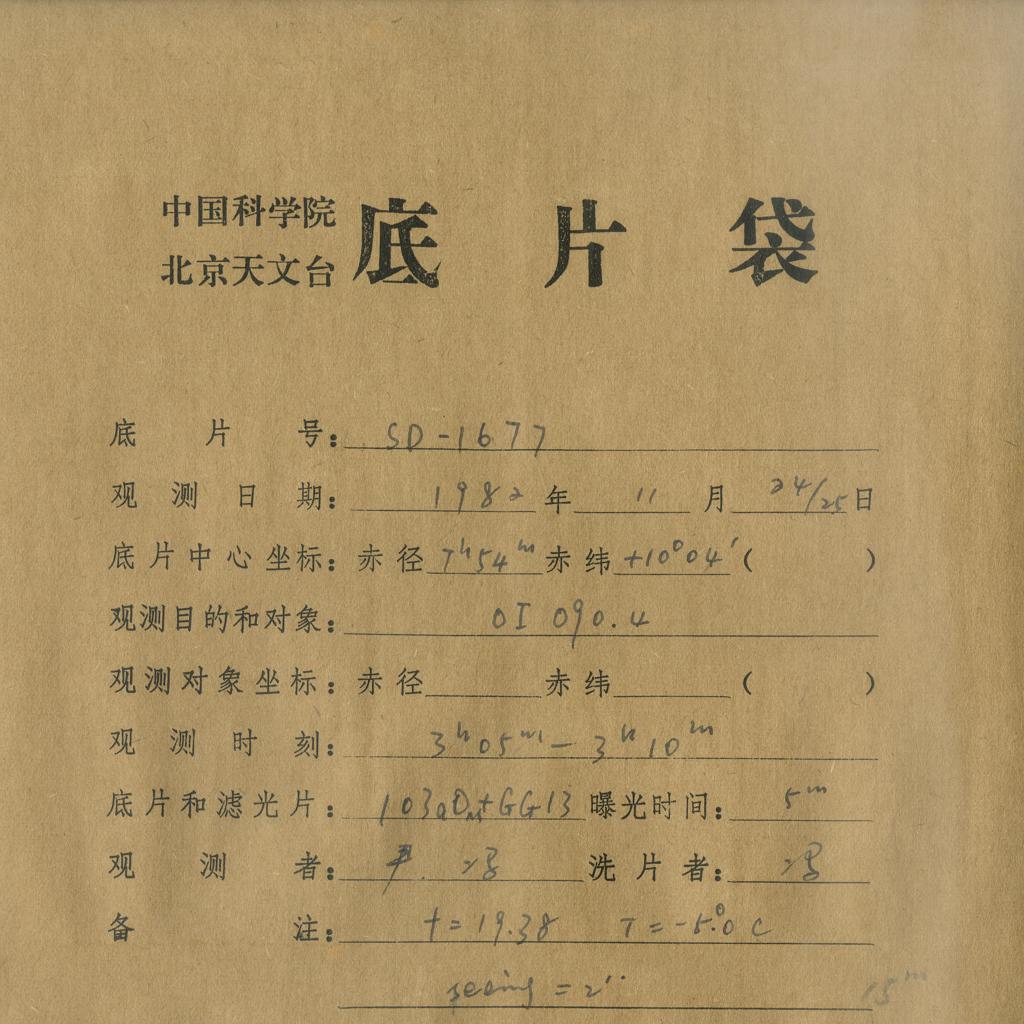 中国科学院
北京天文台
底片袋
底片号: SD-1677
观测日期: 1982年 11月 24/25日
底片中心坐标: 赤径 7ʰ54ᵐ 赤纬 +10°04′ ( )
观测目的和对象: OI 090.4
观测对象坐标: 赤径 赤纬 ( )
观测时刻: 3ʰ05ᵐ — 3ʰ10ᵐ
底片和滤光片: 103aD+GG13 曝光时间: 5ᵐ
观测者: 尹. 冯 洗片者: 冯
备注: t=19.38 T=-5.°0 C
seeing = 2″ 15ᵐ